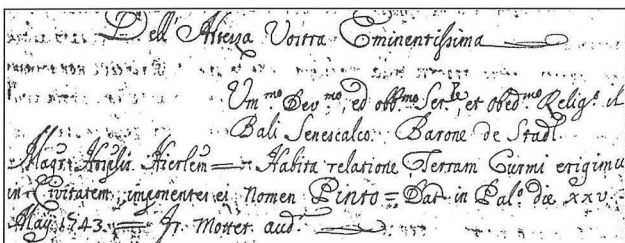 Dell' Altezza Vostra Eminentissima
Um.mo Dev.mo, ed obb.mo Ser.re, et obed.mo Relig.o il
Bali Senescalco. Barone de Stadl
Magr Hosplis Hierlem = Habita relatione Terram Curmi erigimus
in Civitatem, imponentes ei Nomen Pinto = Dat. in Pal.o die xxv
Maij 1743. = Jr. Mottet aud.r